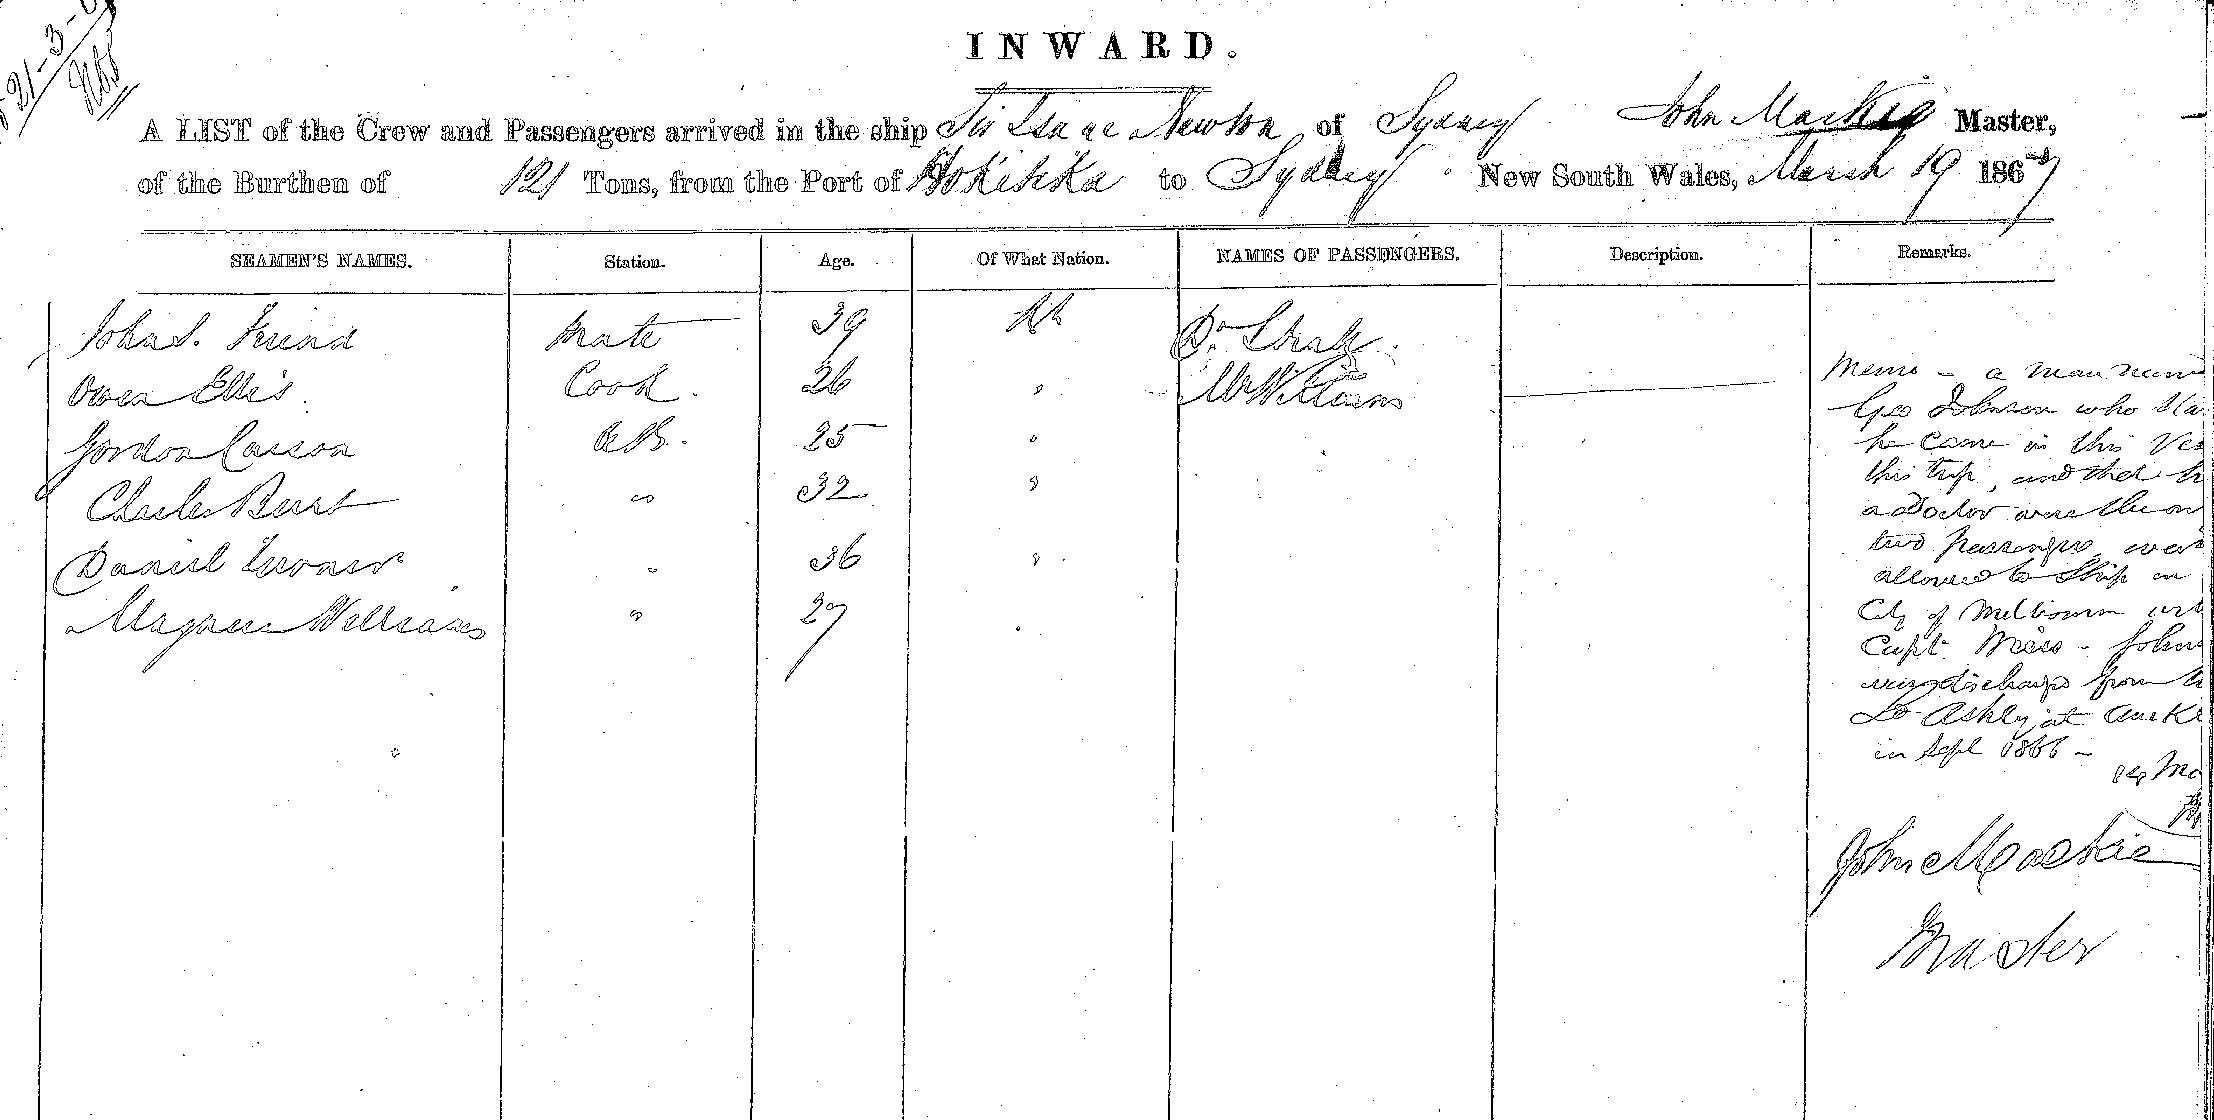 21-3-
INWARD.
A LIST of the Crew and Passengers arrived in the ship Sir Isaac Newton of Sydney John Mackie Master,
of the Burthen of 121 Tons, from the Port of Hokitika to Sydney New South Wales, March 19 1867
SEAMEN'S NAMES. Station. Age. Of What Nation. NAMES OF PASSENGERS. Description. Remarks.
John S. Friend Mate 39
Owen Ellis Cook 26 " Mr Williams
Gordon Casson AB. 25 "
Charles Burt " 32 "
Daniel " 36 "
Magnus Williams " 27 "
Memo - a man nam
Geo Johnson who sta
he came in this Ves
this trip, and that h
a Doctor were the on
two passengers were
allowed to Ship in
City of Melbourne
Capt. - John
discharge from
Ashley at Auckl
in Sept 1866 -
John Mackie
Master